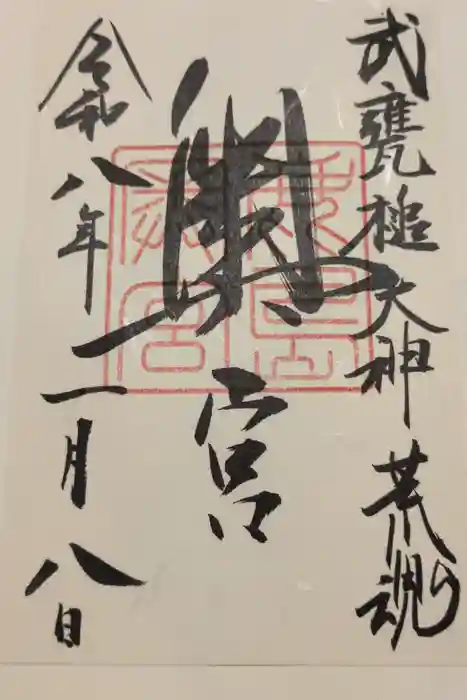 武甕槌大神荒魂
奥宮
鹿島奥宮
令和八年一月八日